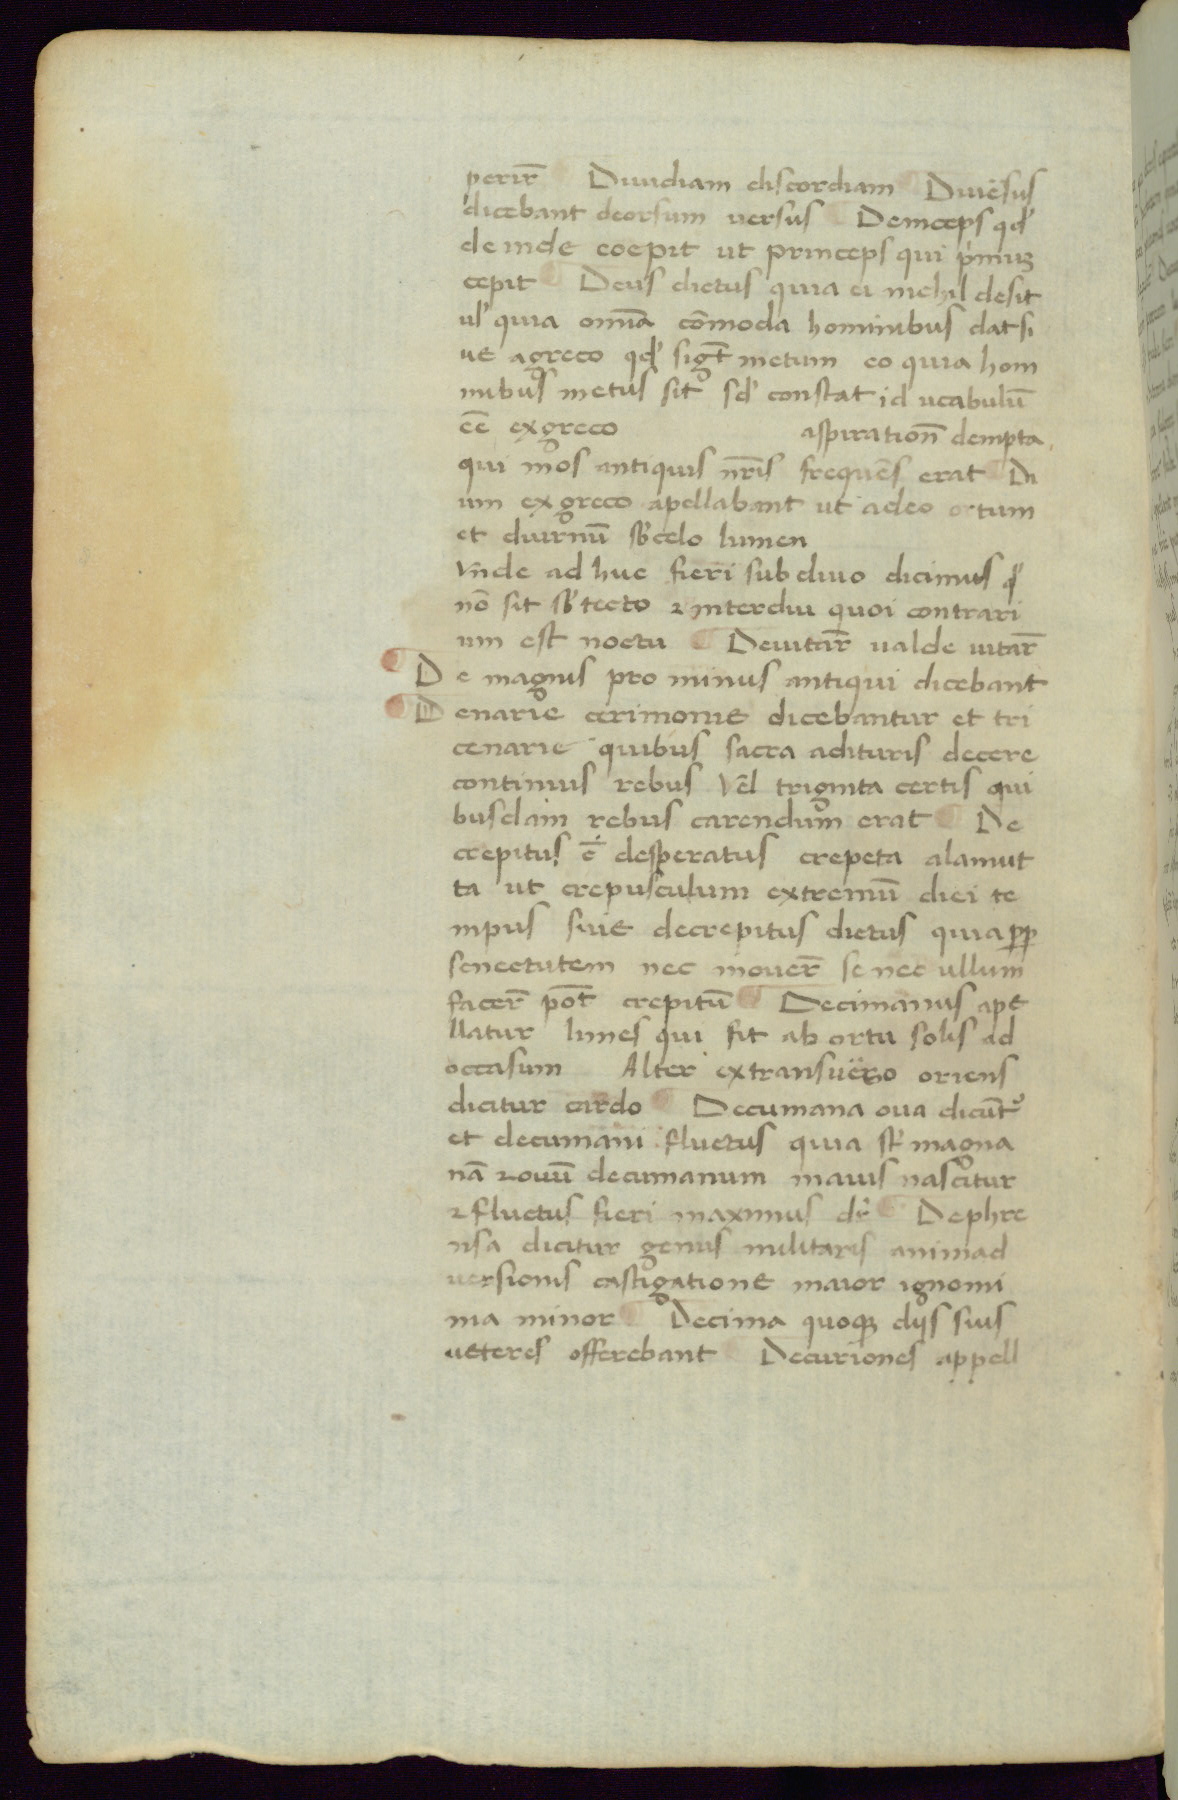 perir̄ Diuidiam discordiam Diuēsus
dicebant deorsum versus Deinceps qd'
deinde coepit ut princeps qui p'muʒ
cepit Deus dictus quia ei nichil desit
ul' quia omīa cōmoda hominibus dat si
ue agreco qd' sigt̄ metum eo quia hom
nibus metus sit sd' constat id ucabulū
eē exgreco aspiration̄ dempta
qui mos antiquis nr̄is frequēs erat Di
um exgreco apellabant ut adeo ortum
et diurnū sb' celo lumen
Vn̄de ad huc fieri sub diuo dicimus q'
nō sit sb' tecto ⁊ interdiu quoi contrari
um est noctu Deuitar̄ ualde uitar̄
De magnis pro minus antiqui dicebant
Denarie cerimonie dicebantur et tri
cenarie quibus sacra adituris decere
continuis rebus Vēl triginta certis qui
busdam rebus carendum erat De
crepitus ē desperatus crepeta alamut
ta ut crepusculum extremū diei te
mpus siue decrepitus dictus quia pp
senectutem nec mouer̄ se nec ullum
facer̄ pōt crepitū Decimanus ape
llatur limes qui fit ab ortu solis ad
occasum Alter extransuērso oriens
dicitur cardo Decumana oua dicūt᷑
et decumani fluctus quia st' magna
nā ⁊ ouū decumanum maius nascitur
⁊ fluctus fieri maximus dr̄ Dephre
nsa dicitur genus militaris animad
uersionis castigatione maior ignomi
nia minor Decima quoqꝫ diis suis
ueteres offerebant Decuriones appell